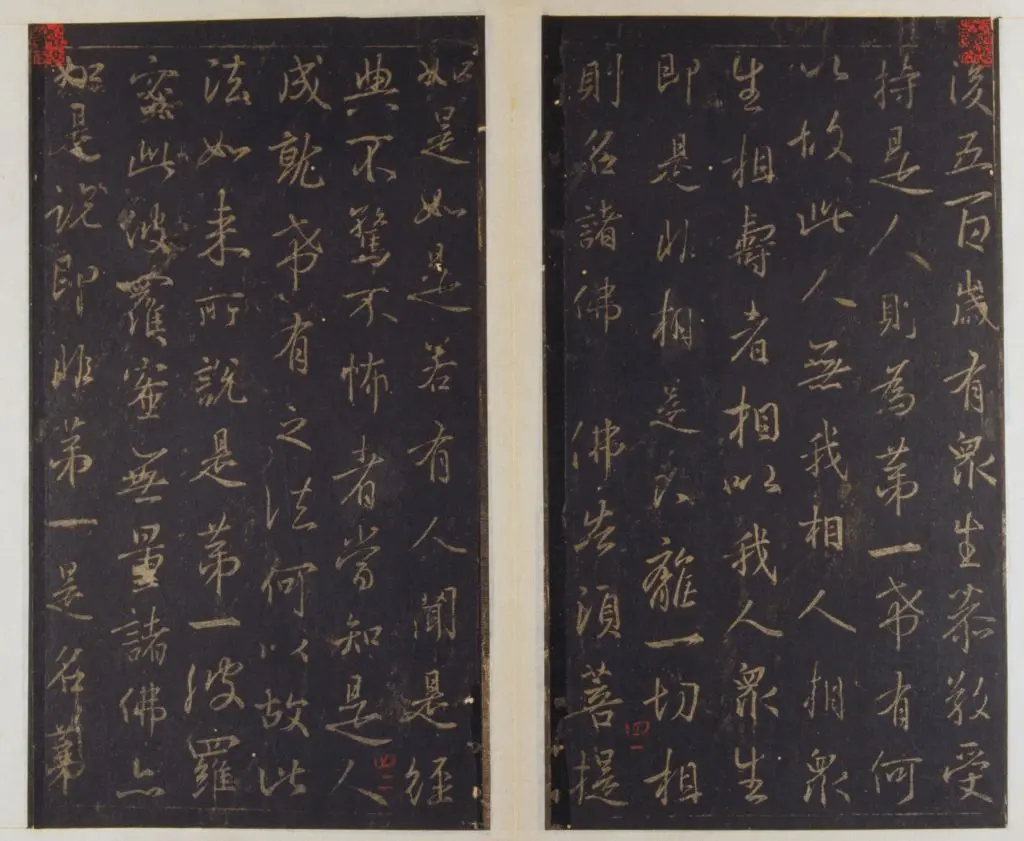 後五百歲有衆生恭敬受
持是人則為第一希有何
以故此人無我相人相衆
生相壽者相以我人衆生
即是非相是以離一切相
則名諸佛　佛告須菩提
四一
如是如是若有人聞是經
典不驚不怖者當知是人
成就希有之法何以故此
法如來所說是第一波羅
蜜此波羅蜜無量諸佛亦
如是說即非第一是名第
四二